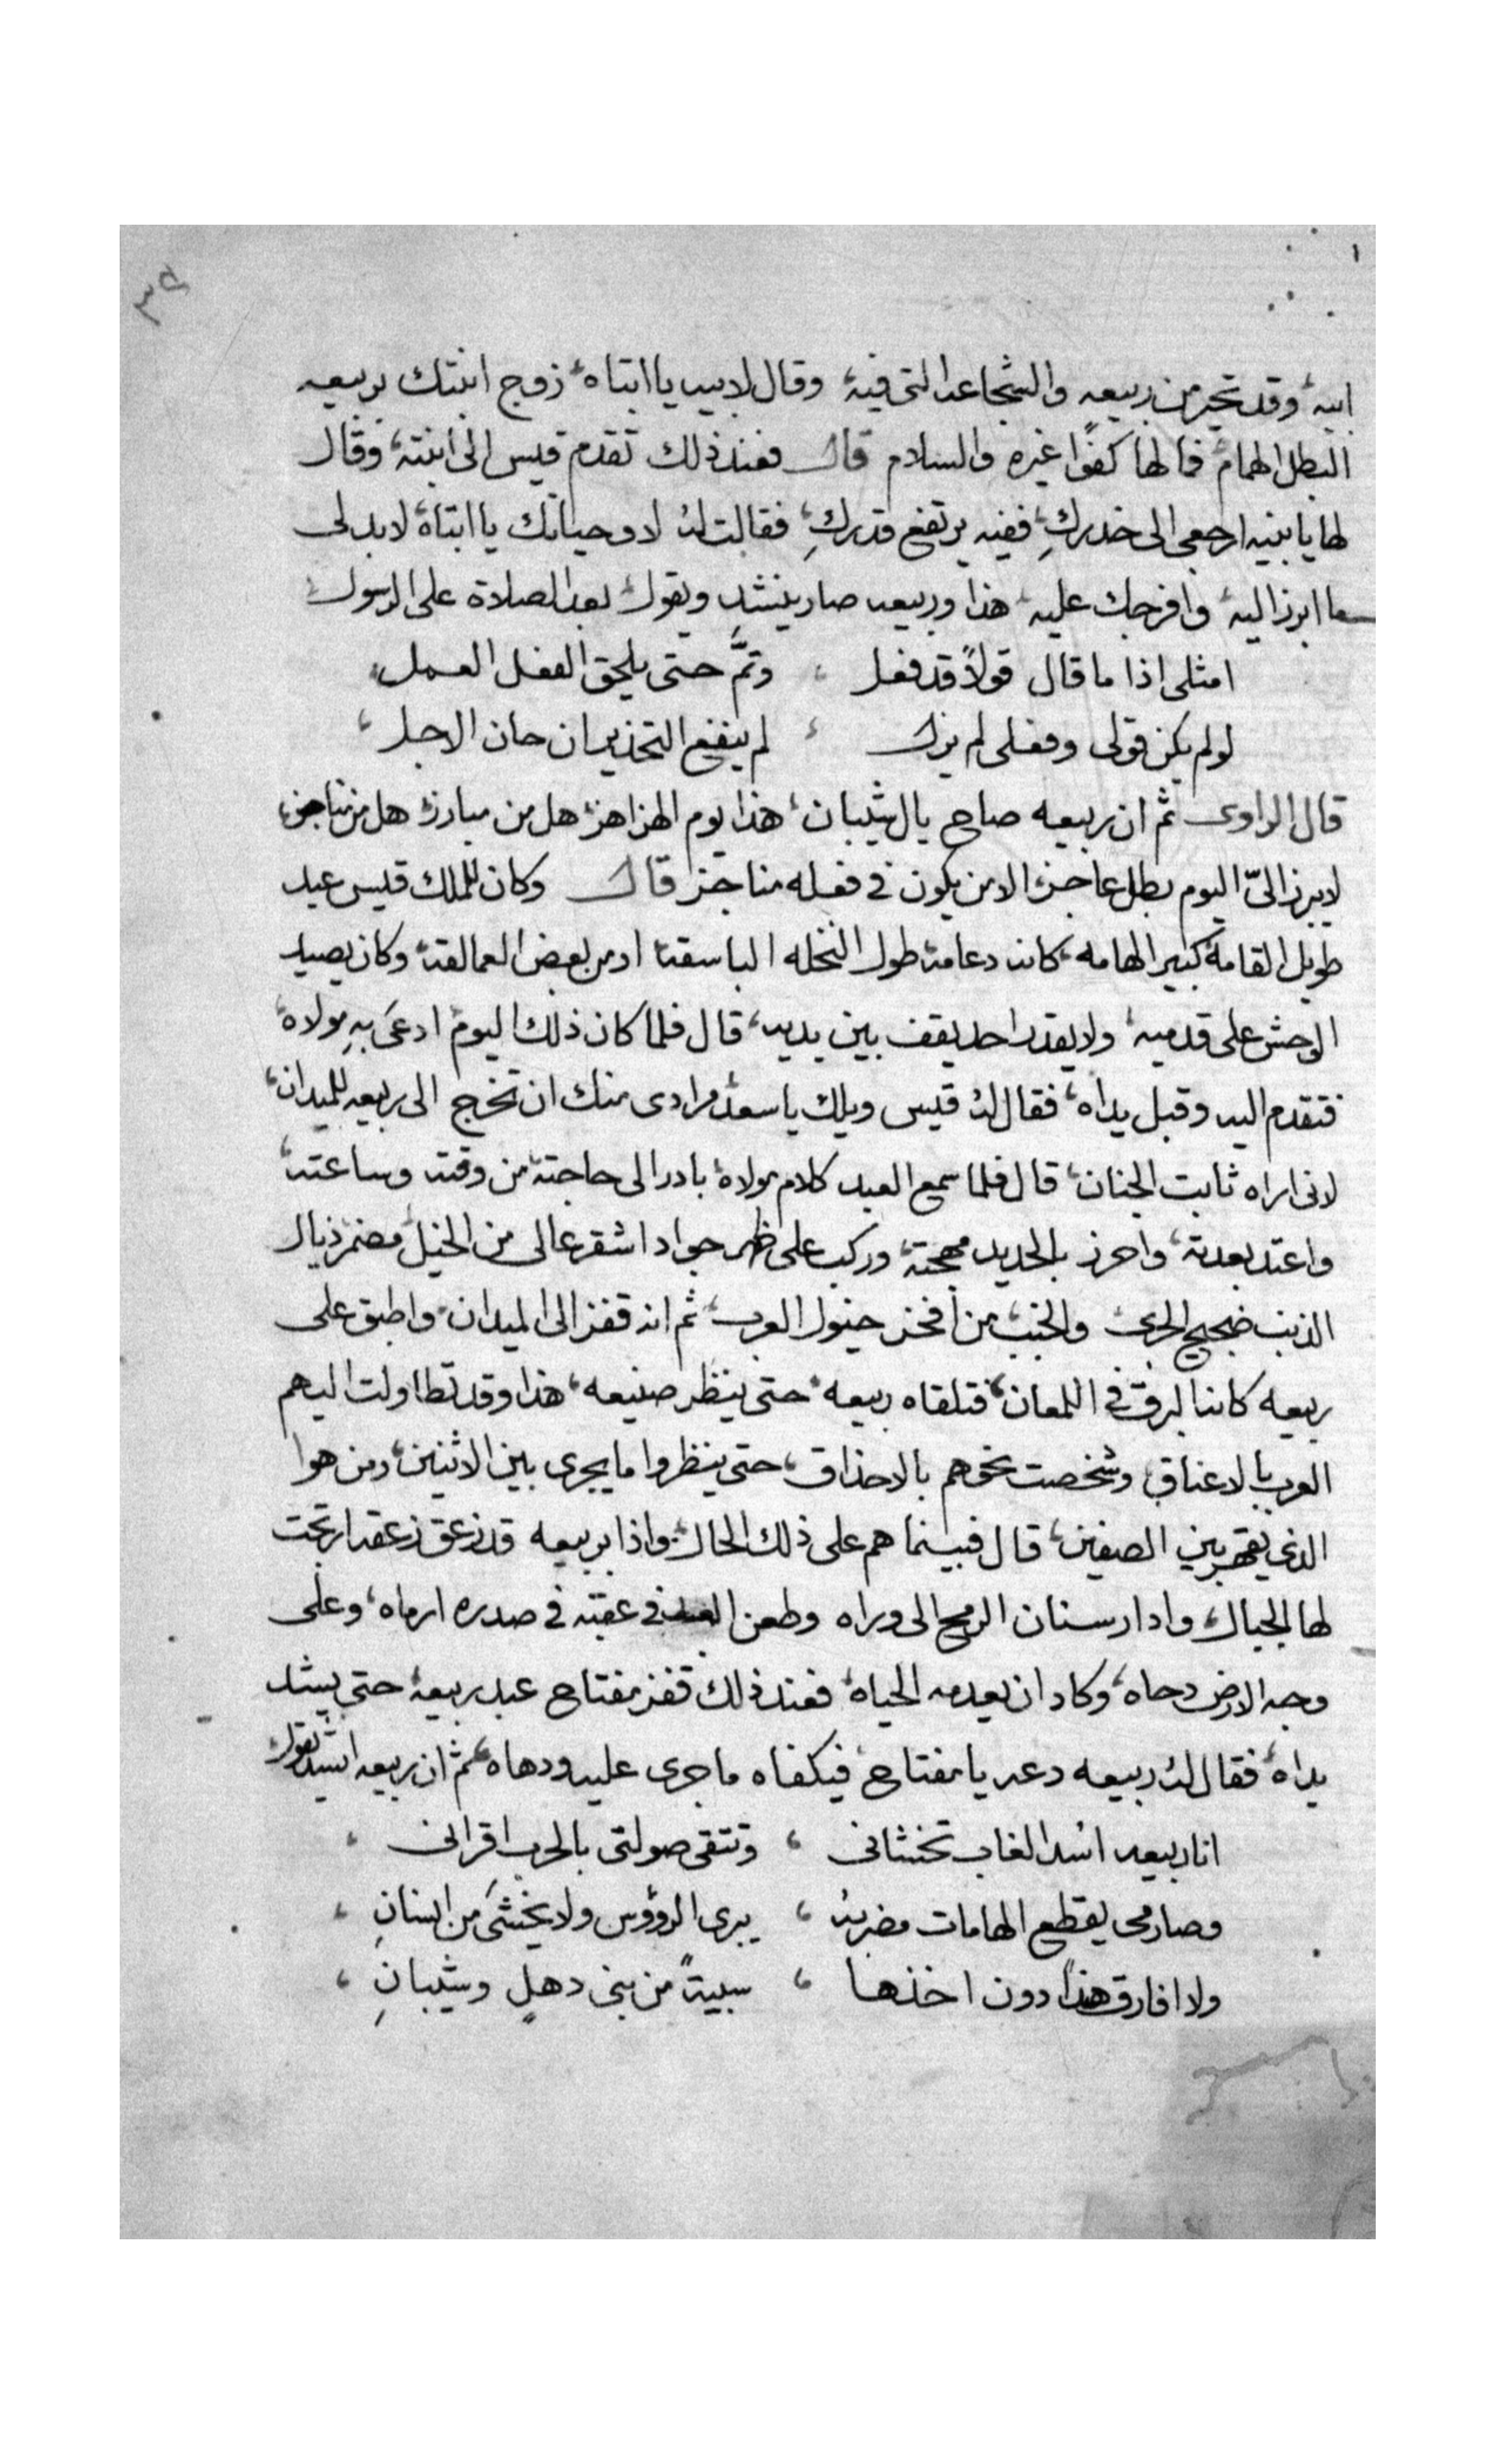 ٣٥
ابيه، وقد تحير من ربيعه والشجاعه التى فيه، وقال لابيه يا ابتاه، زوج ابنتك بربيعه
البطل الهمام، فما لها كفوًا غيره والسلام قال فعند ذلك تقدم قيس الى ابنته، وقال
لها يا بنيه ارجعى الى خدركِ، ففيه يرتفع قدركِ، فقالت له لا وحياتك يا ابتاه، لا بد لى
ما ابرز اليه، وافرجك عليه، هذا وربيعه صار ينشد ويقول بعد الصلاة على الرسول
امثلى اذا ما قال قولًا قد فعل ، وتمَّ حتى يلحق الفعل العمل،
لو لم يكن قولى وفعلى لم يزل ، لم ينفع التحذير ان حان الاجل ،
قال الراوى ثم ان ربيعه صاح يال شيبان، هذا يوم الهزاهز، هل من مبارز، هل من مناجز،
لا يبرز الىّ اليوم بطل عاجز، الا من يكون فى فعله مناجز قال وكان للملك قيس عبد
طويل القامة، كبير الهامه، كانه دعامة، طول النخله الباسقه، او من بعض العمالقة، وكان يصيد
الوحش على قدميه، ولا يقدر احد يقف بين يديه، قال فلما كان ذلك اليوم ادعىَ بهِ مولاه،
فتقدم اليه وقبل يداه، فقال له قيس ويلك يا سعد، مرادى منك ان تخرج الى ربيعه للميدان،
لانى اراه ثابت الجنان، قال فلما سمع العبد كلام مولاه، بادر الى حاجته، من وقته وساعته،
واعتد بعدته، واحرز بالحديد مهجته، وركب على ظهر جواد اشقر عالى من الخيل، مضمر ذيال
الذنب ضجيج الجرى والخبب، من أفخر خيول العرب، ثم انه قفز الى الميدان، واطبق على
ربيعه كانه البرق فى اللمعان، فتلقاه ربيعه، حتى ينظر صنيعه، هذا وقد تطاولت اليهم
العرب بالاعناق، وشخصت نحوهم بالاحداق، حتى ينظروا ما يجرى بين الاثنين، ومن هوا
الذى يقهر بين الصفين، قال فبينما هم على ذلك الحال، واذا بربيعه قد زعق زعقه ارتجت
لها الجبال، وادار سنان الرمح الى وراه وطعن العبد فى عقبه فى صدره ارماه، وعلى
وجه الارض دحاه، وكاد ان يعدمه الحياه، فعند ذلك قفز مفتاح عبد ربيعه، حتى يشد
يداه، فقال له ربيعه دعه يا مفتاح، فيكفاه ما جرى عليه ودهاه، ثم ان ربيعه انشد يقول
انا ربيعه اسُد الغاب تخشانى ، وتتقى صولتى بالحرب اقرانى ،
وصارمى يقطع الهامات مضربه ، يبرى الرؤوس ولا يخشىَ من انسانِ ،
ولا افارق هندًا دون اخذها ، سبيةً من بنى دهلٍ وشيبانِ ،